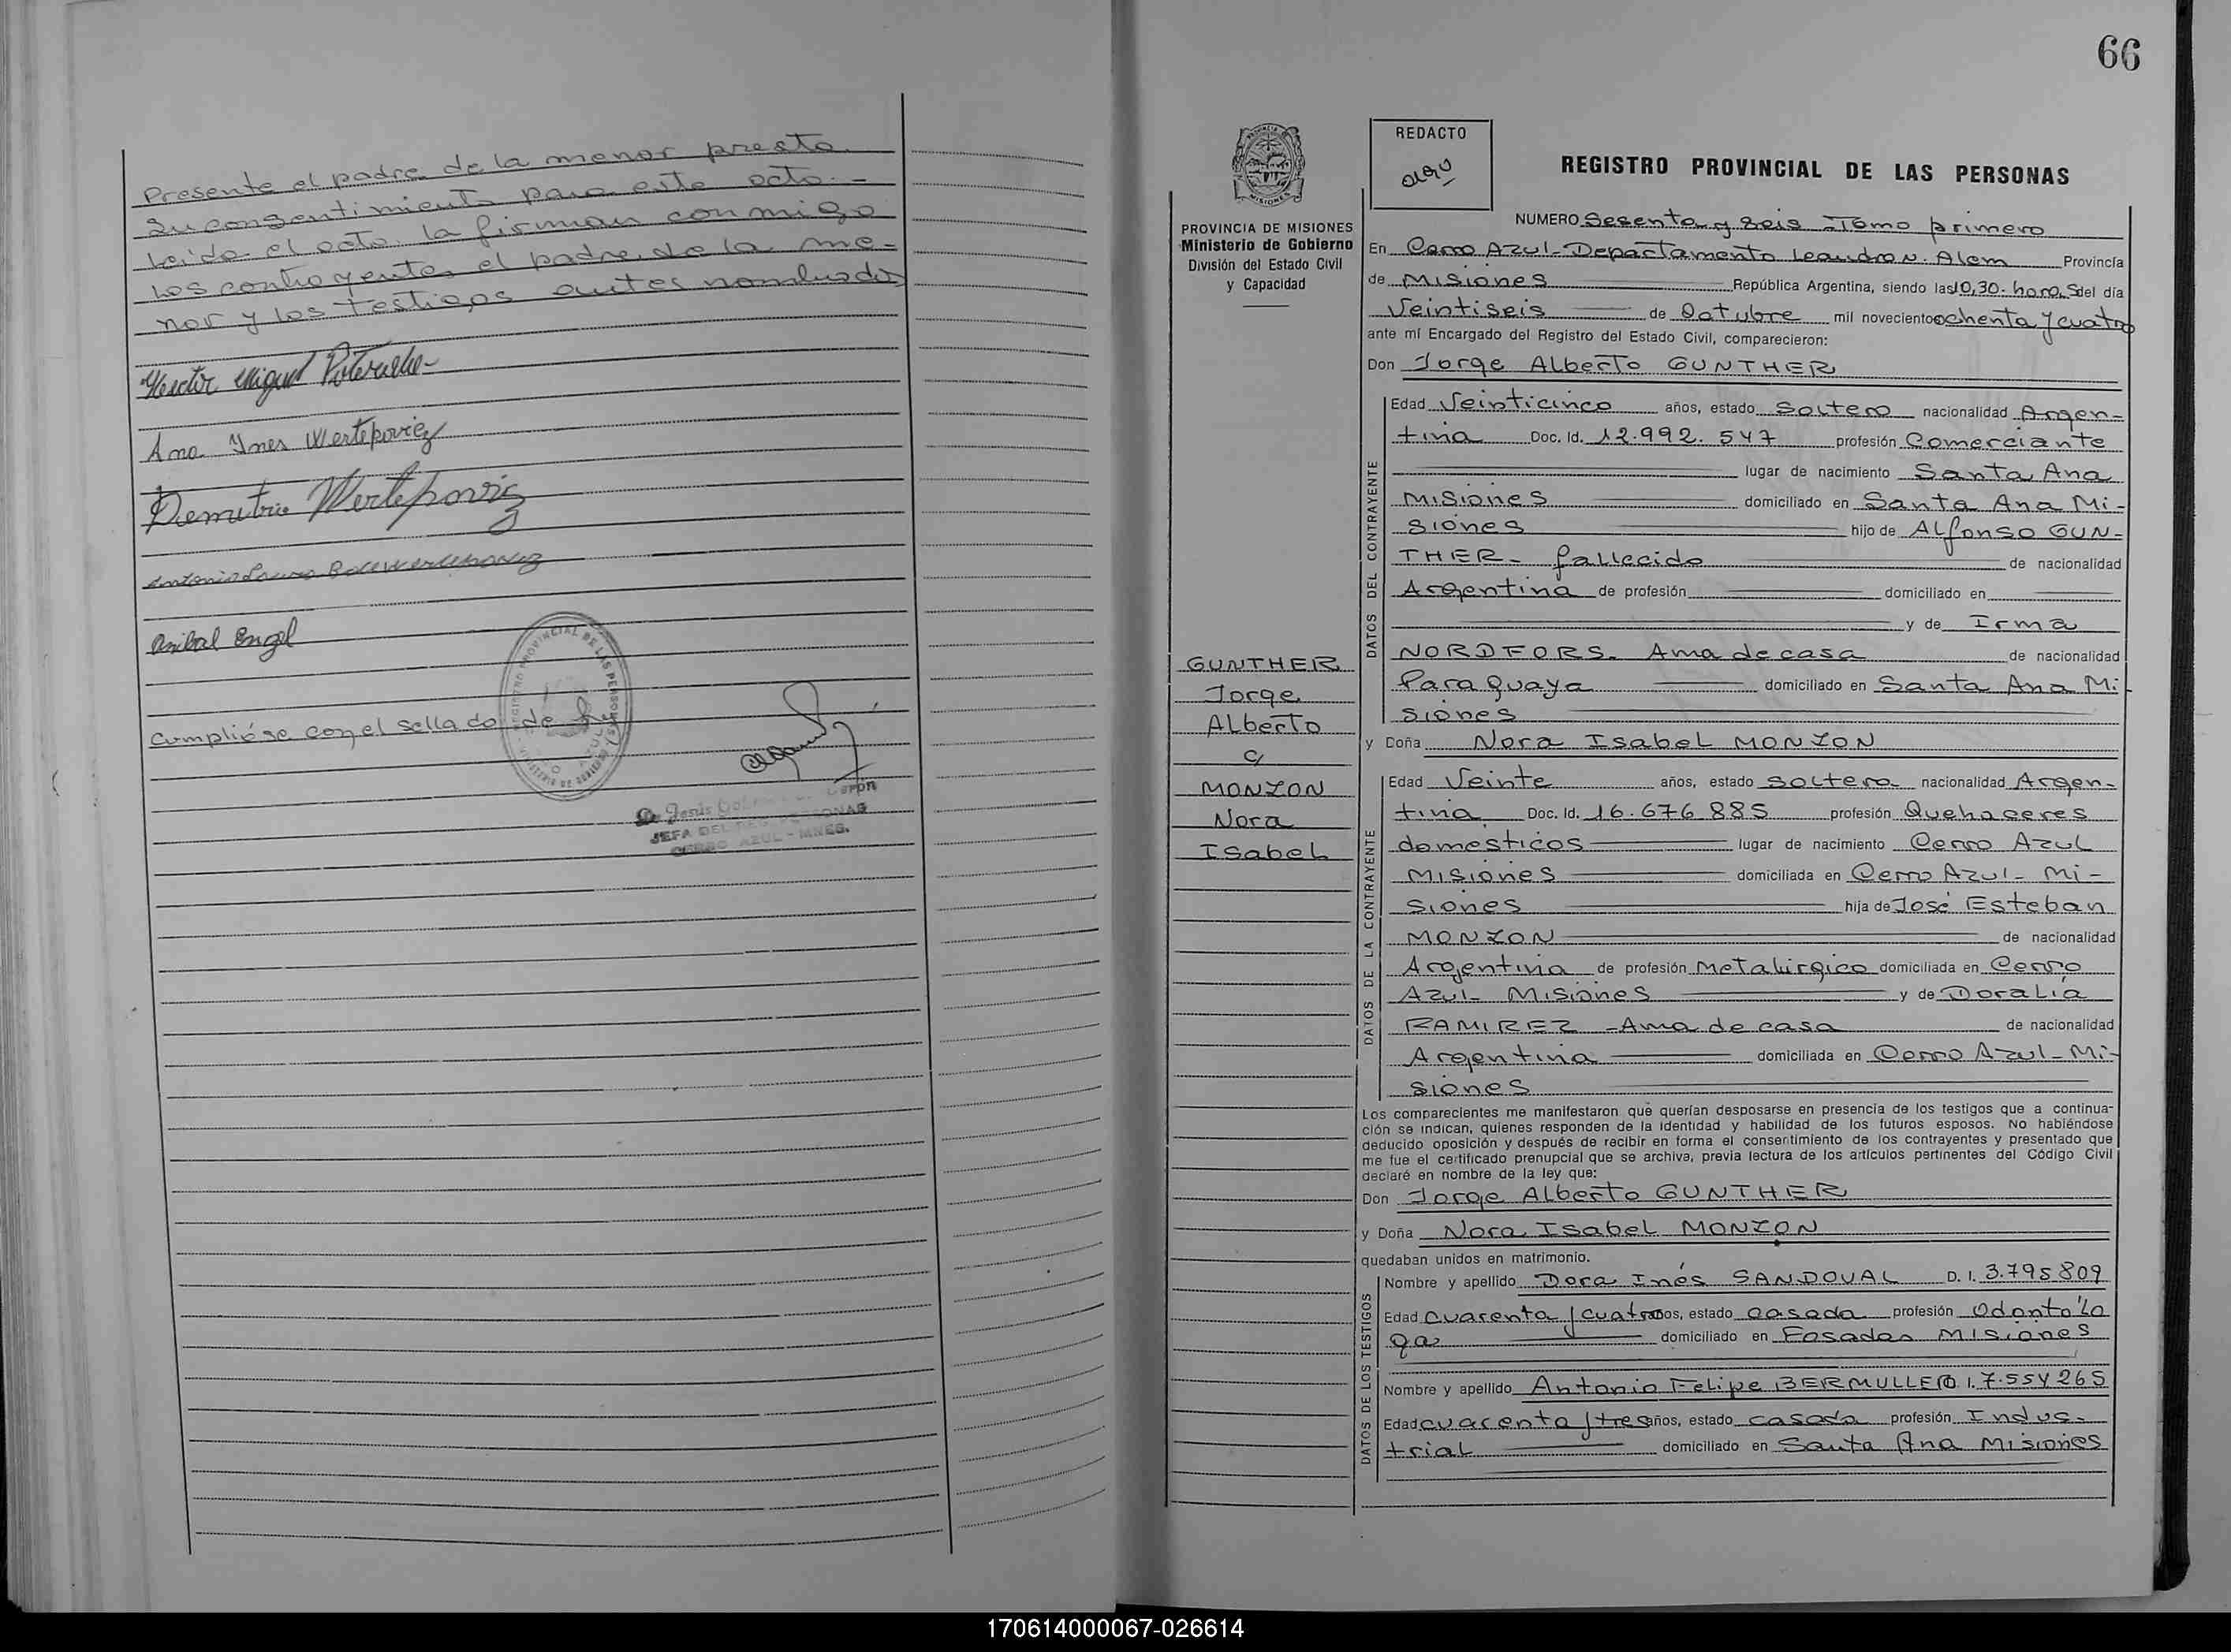 Presente el padre de la menor presta
su consentimiento para este acto.-
Leida el acta. La firman conmigo
Los contrayentes el padre de la me-
nor y los testigos antes nombrados
Hector Miguel
Ana Ines Wertepoviez
Demetrio Wertepoviz
Anibal Engel
Cumplióse con el sellado de Ley
REGISTRO PROVINCIAL DE LAS PERSONAS
JEFA DEL REG. PERSONAS
CERRO AZUL - MNES.
66
PROVINCIA DE MISIONES
Ministerio de Gobierno
División del Estado Civil
y Capacidad
GUNTHER
Jorge
Alberto
c/
MONZON
Nora
Isabel
REDACTO
REGISTRO PROVINCIAL DE LAS PERSONAS
NUMERO Sesenta y seis - Tomo primero
En Cerro Azul - Departamento Leandro N. Alem Provincia
de Misiones República Argentina, siendo las 10,30. horas del día
Veintiseis de Octubre mil novecientos ochenta y cuatro
ante mí Encargado del Registro del Estado Civil, comparecieron:
Don Jorge Alberto GUNTHER
DATOS DEL CONTRAYENTE
Edad Veinticinco años, estado Soltero nacionalidad Argen-
tina Doc. Id. 12.992.547 profesión Comerciante
lugar de nacimiento Santa Ana
Misiones domiciliado en Santa Ana Mi-
siones hijo de Alfonso GUN-
THER - fallecido de nacionalidad
Argentina de profesión domiciliado en
y de Irma
NORDFORS. Ama de casa de nacionalidad
Paraguaya domiciliado en Santa Ana Mi
siones
y Doña Nora Isabel MONZON
DATOS DE LA CONTRAYENTE
Edad Veinte años, estado soltera nacionalidad Argen-
tina Doc. Id. 16.676.885 profesión Quehaceres
domesticos lugar de nacimiento Cerro Azul
Misiones domiciliada en Cerro Azul - Mi-
siones hija de José Esteban
MONZON de nacionalidad
Argentina de profesión Metalúrgico domiciliada en Cerro
Azul - Misiones y de Doralia
RAMIREZ - Ama de casa de nacionalidad
Argentina domiciliada en Cerro Azul - Mi-
siones
Los comparecientes me manifestaron que querían desposarse en presencia de los testigos que a continua-
ción se indican, quienes responden de la identidad y habilidad de los futuros esposos. No habiéndose
deducido oposición y después de recibir en forma el consentimiento de los contrayentes y presentado que
me fue el certificado prenupcial que se archiva, previa lectura de los artículos pertinentes del Código Civil
declaré en nombre de la ley que:
Don Jorge Alberto GUNTHER
y Doña Nora Isabel MONZON
quedaban unidos en matrimonio.
DATOS DE LOS TESTIGOS
Nombre y apellido Dora Inés SANDOVAL D. I. 3.795.809
Edad cuarenta y cuatro años, estado casada profesión Odontólo
ga domiciliado en Posadas Misiones
Nombre y apellido Antonio Felipe BERMULLER D. I. 7.554.265
Edad cuarenta y tres años, estado casado profesión Indus-
trial domiciliado en Santa Ana Misiones
170614000067-026614